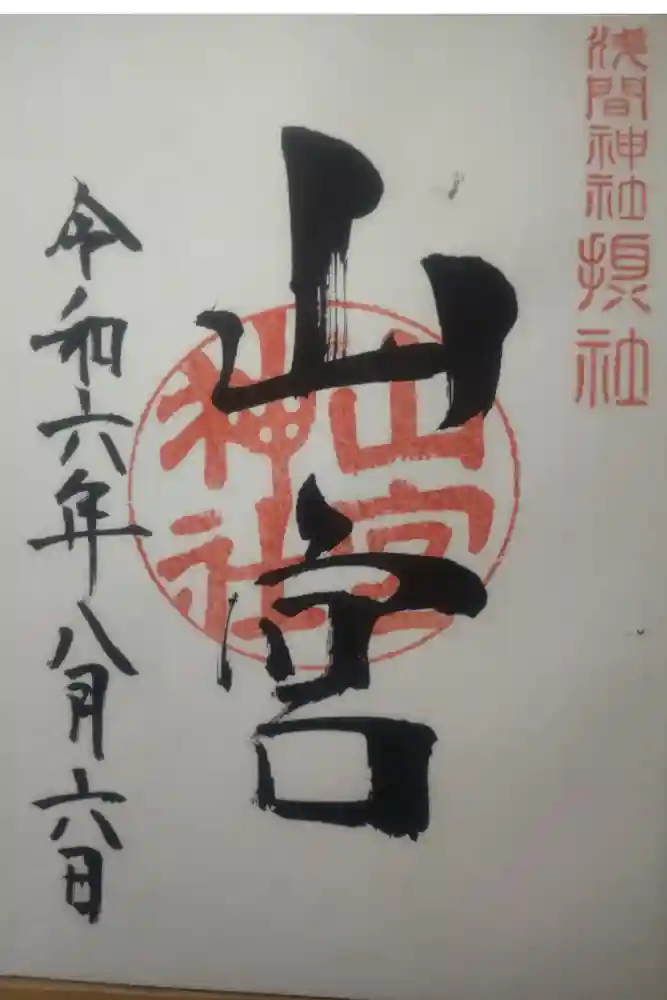 浅間神社摂社
山宮
山宮
神社
令和六年八月六日